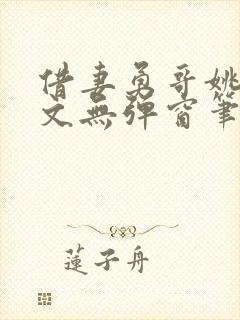 借妻勇哥姚
文無彈窗筆
蓮子舟